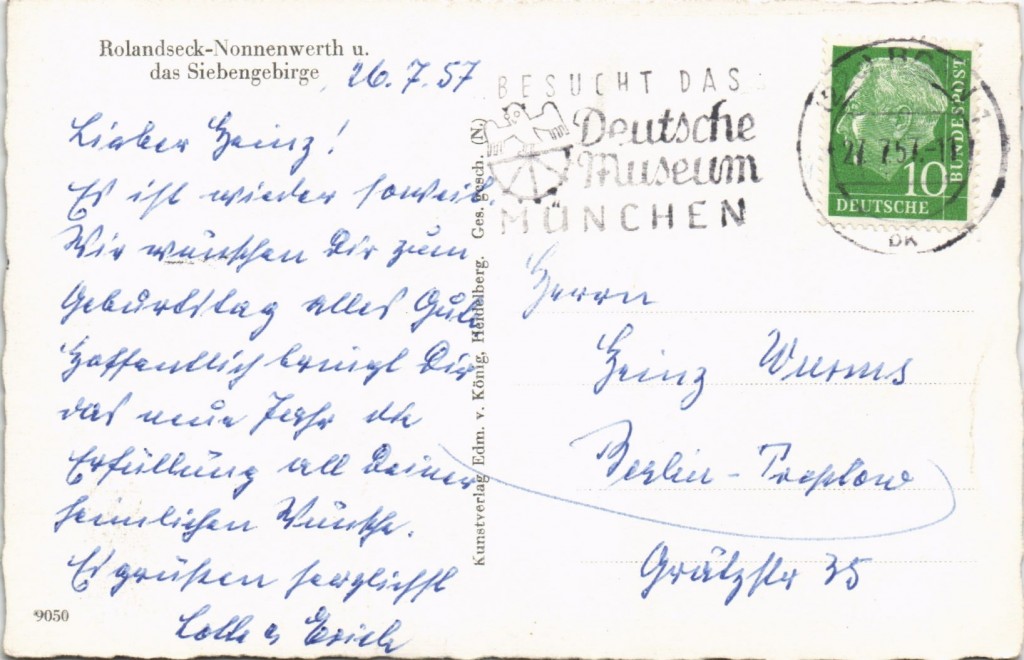 Rolandseck-Nonnenwerth u.
das Siebengebirge
26.7.57
Lieber Heinz!
Es ist wieder soweit.
Wir wünschen Dir zum
Geburtstag alles Gute
Hoffentlich bringt Dir
das neue Jahr die
Erfüllung all Deiner
heimlichen Wünsche.
Es grüßen herzlichst
Lotte u Erich
9050
Kunstverlag Edm. v. König, Heidelberg. Ges. gesch. (N.)
BESUCHT DAS
Deutsche
Museum
MÜNCHEN
27.7.57.-1
BUNDESPOST
10
DEUTSCHE
Herrn
Heinz Wurms
Berlin-Treptow
Grätzstr 35